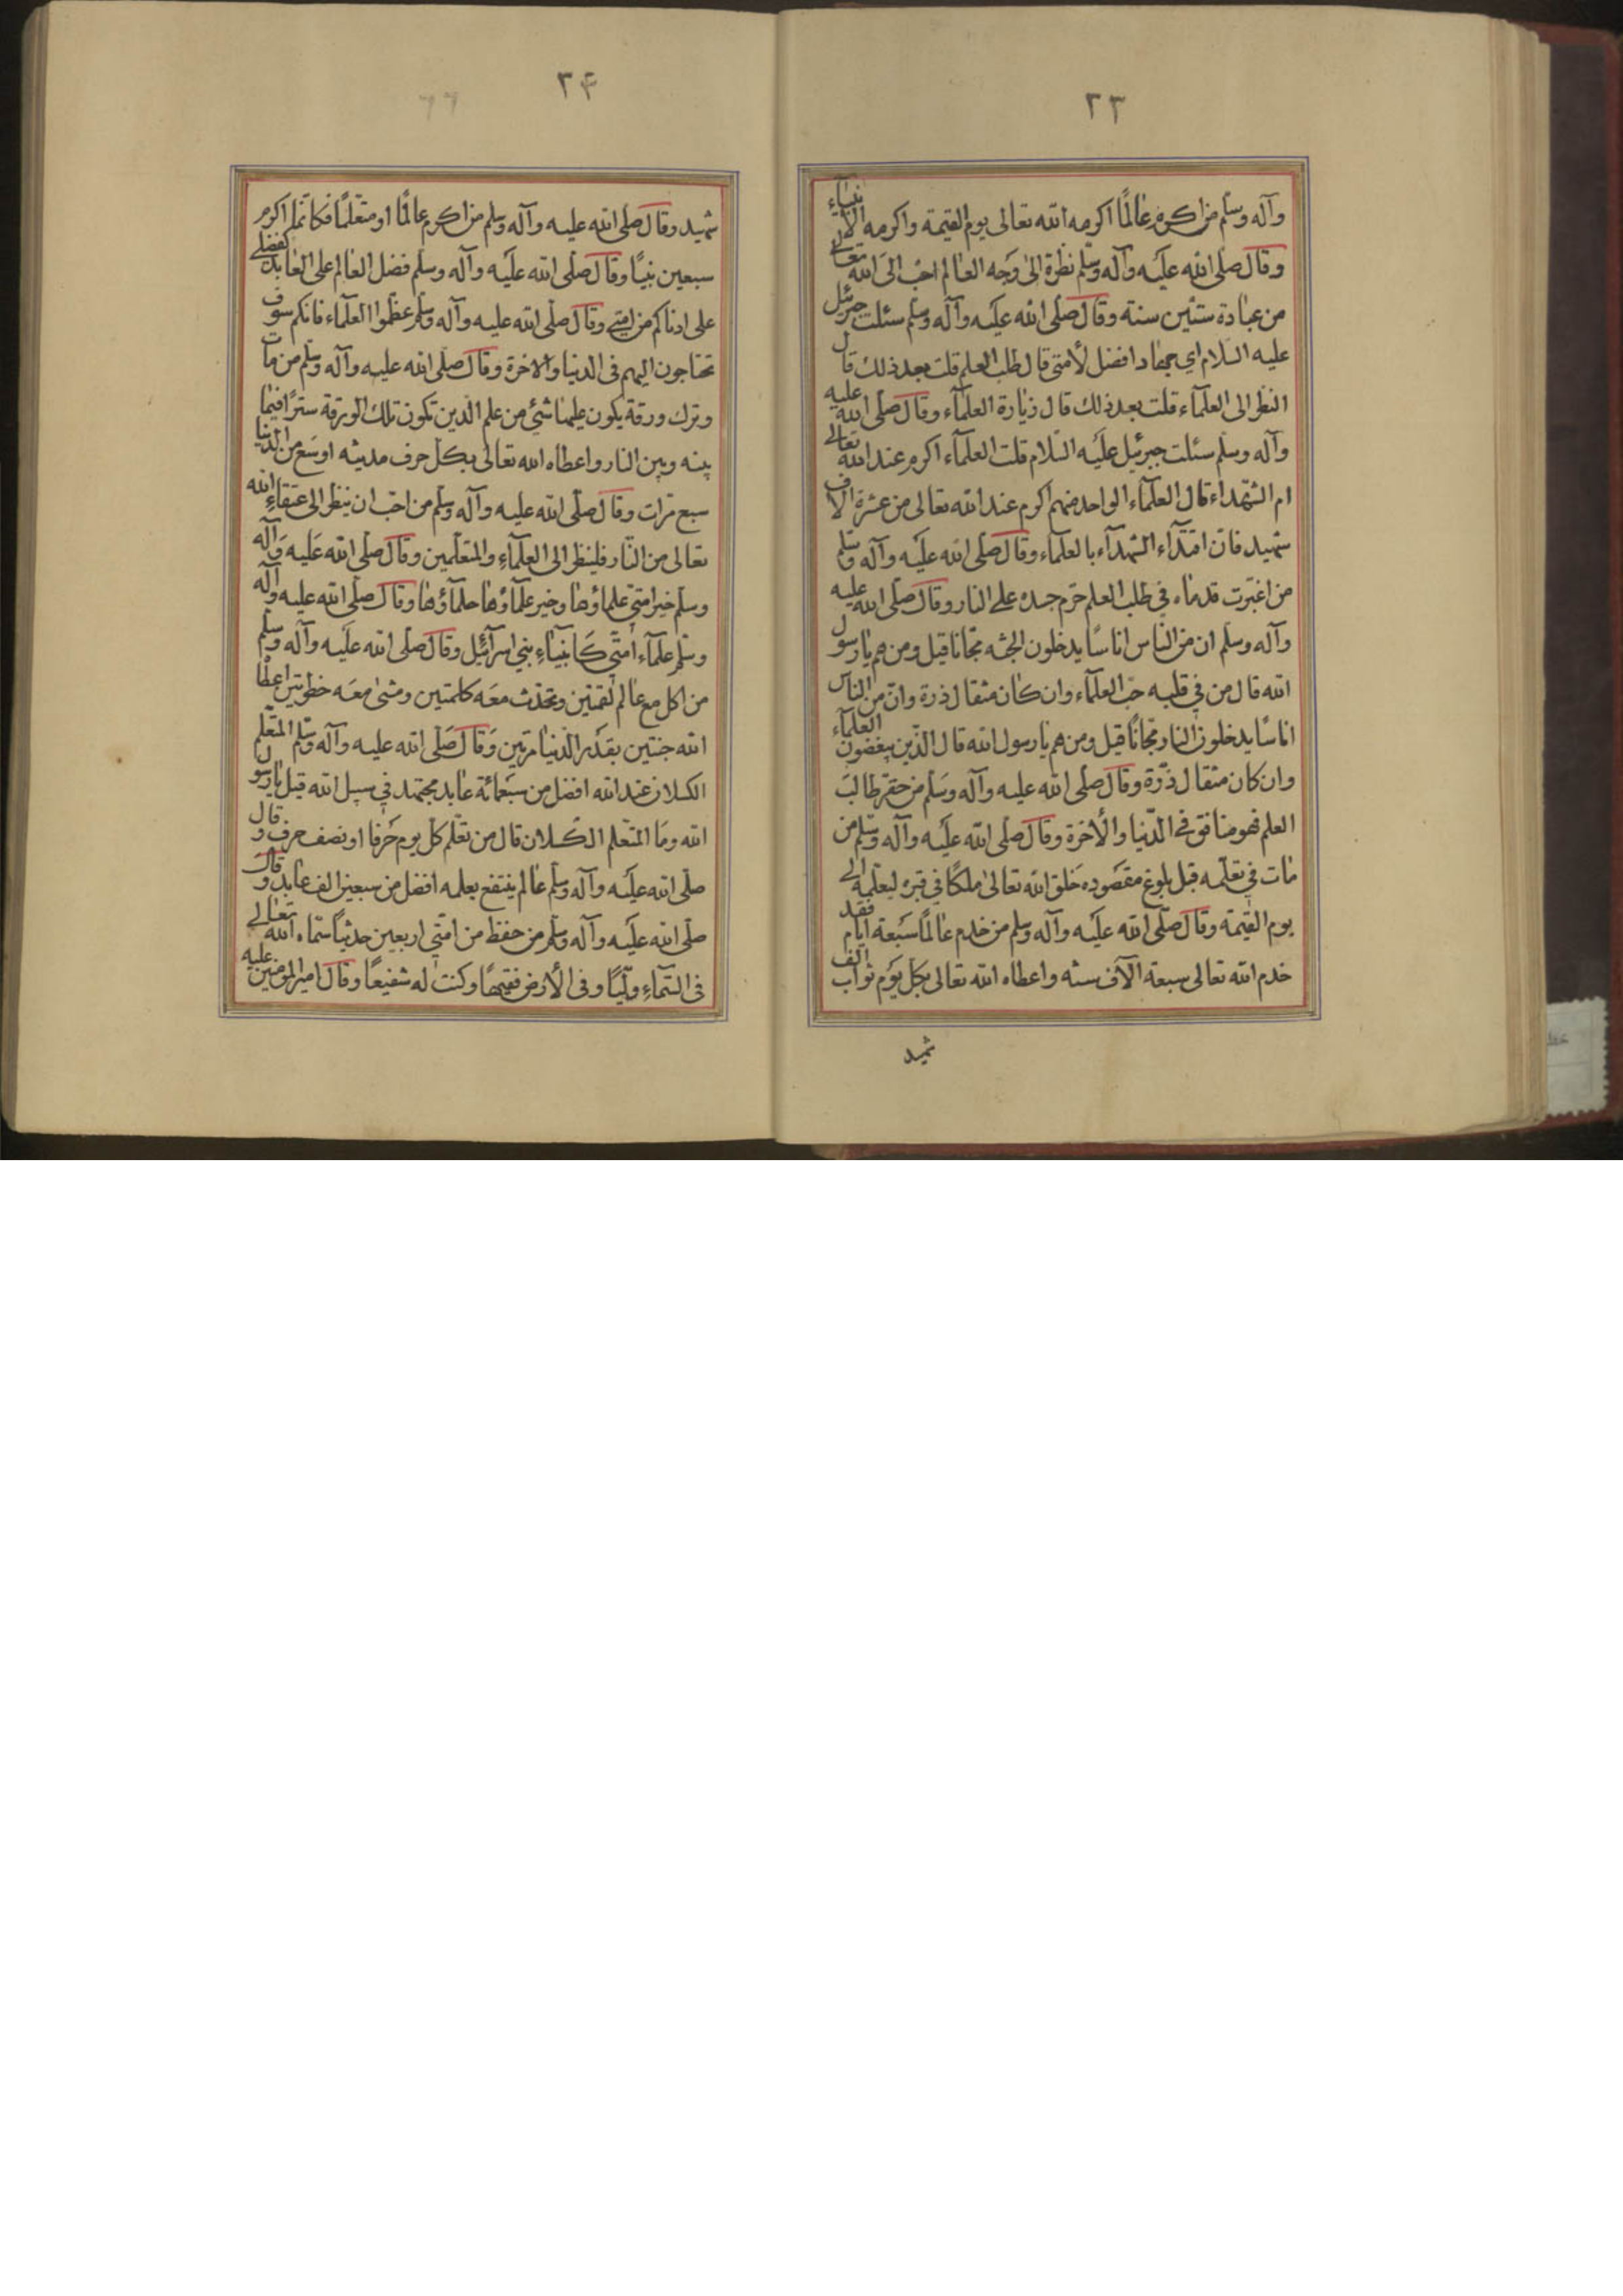 ٢٣
وآله وسلم من اكرم عٰالمًا اكرمه الله تعالى يوم القيمة واكرمه الانبيآء
وقال صلى الله عليه وآله وسلم نظرة الىٰ وجه العٰالم احبّ الى الله تعالى
من عبٰادة ستّين سنة وقال صلى الله عليه وآله وسلم سئلت جبرئيل
عليه السلام اي جهٰاد افضل لأمتي قال طلب العلم قلت بعد ذلك قال
النظر الى العلمآء قلت بعد ذلك قال زيٰارة العلمآء وقال صلى الله عليه
وآله وسلم سئلت جبرئيل عليه السلام قلت العلمآء اكرم عند الله تعالى
ام الشهداء قال العلمآء الواحد منهم اكرم عند الله تعالى من عشرة الاف
شهيد فان اقتدآء الشهدآء بالعلماء وقال صلى الله عليه وآله وسلم
من اغبرت قدمٰاه في طلب العلم حرّم جسده على النار وقال صلى الله عليه
وآله وسلم ان من الناس اناسًا يدخلون الجنّه مجّانًا قيل ومن هم يٰا رسول
الله قال من في قلبه حبّ العلمآء وان كان مثقال ذرة وانّ من الناس
اناسًا يدخلون النار مجّانًا قيل ومن هم يٰا رسول الله قال الذين يبغضون العلمآء
وان كان مثقال ذرّة وقال صلى الله عليه وآله وسلم من حقر طالب
العلم فهو منافق في الدّنيا والأخرة وقال صلى الله عليه وآله وسلّم من
مٰات في تعلّمه قبل بلوغ مقصوده خلق الله تعالىٰ ملكًا في قبره ليعلّمه الى
يوم القيمة وقال صلى الله عليه وآله وسلم من خدم عٰالمًا سبعة ايّام فقد
خدم الله تعالى سبعة الآف سنه واعطاه الله تعالى بكل يوم ثواب الف
شهيد
٢۴
شهيد وقال صلى الله عليه وآله وسلم من اكرم عالمًا او متعلّمًا فكانّما اكرم
سبعين نبيًا وقال صلى الله عليه وآله وسلم فضل العٰالم على العٰابد كفضلي
على ادناكم من امتي وقال صلى الله عليه وآله وسلم عظّموا العلمآء فانكم سوف
تحتاجون اليهم فى الدنيا والاخرة وقال صلى الله عليه وآله وسلّم من مات
وترك ورقة يكون عليها شيئ من علم الدين تكون تلك الورقة سترًا فيمٰا
بينه وبين النار واعطاه الله تعالى بكل حرف مدينه اوسع من الدنيا
سبع مرّات وقال صلى الله عليه وآله وسلّم من احبّ ان ينظر الى عتقاء الله
تعالى من النّار فلينظر الى العلمآء والمتعلّمين وقال صلى الله عليه وآله
وسلم خير امتي علمٰاؤها وخير علمآؤهٰا حلمآؤهٰا وقال صلى الله عليه وآله
وسلم علمآء أمتي كانبيآء بني اسرآئيل وقال صلى الله عليه وآله وسلم
من اكل مع عٰالم لقمتين وتحدّث معه كلمتين ومشىٰ معه خطوتين اعطٰا
الله جنتين بقدر الدّنيا مرتين وقال صلى الله عليه وآله وسلم المتعلّم
الكسلان عند الله افضل من سبعمائة عابد مجتهد في سبيل الله قيل يٰا رسول
الله ومٰا المتعلّم الكسلان قال من تعلّم كل يوم حرفا او نصف حرف وقال
صلى الله عليه وآله وسلّم عٰالم ينتفع بعلمه افضل من سبعين الف عابد وقال
صلى الله عليه وآله وسلم من حفظ من امتي اربعين حديثًا سمّاه الله تعالى
في السّمآء وليًّا وفى الأرض فقيهًا وكنت له شفيعًا وقال امير المؤمنين عليه